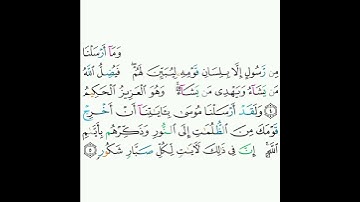 وَمَآ أَرْسَلْنَا
مِن رَّسُولٍ إِلَّا بِلِسَانِ قَوْمِهِۦ لِيُبَيِّنَ لَهُمْ ۖ فَيُضِلُّ ٱللَّهُ
مَن يَشَآءُ وَيَهْدِى مَن يَشَآءُ ۚ وَهُوَ ٱلْعَزِيزُ ٱلْحَكِيمُ
۝٤ وَلَقَدْ أَرْسَلْنَا مُوسَىٰ بِـَٔايَـٰتِنَآ أَنْ أَخْرِجْ
قَوْمَكَ مِنَ ٱلظُّلُمَـٰتِ إِلَى ٱلنُّورِ وَذَكِّرْهُم بِأَيَّىٰمِ
ٱللَّهِ ۚ إِنَّ فِى ذَٰلِكَ لَـَٔايَـٰتٍ لِّكُلِّ صَبَّارٍ شَكُورٍ ۝٥